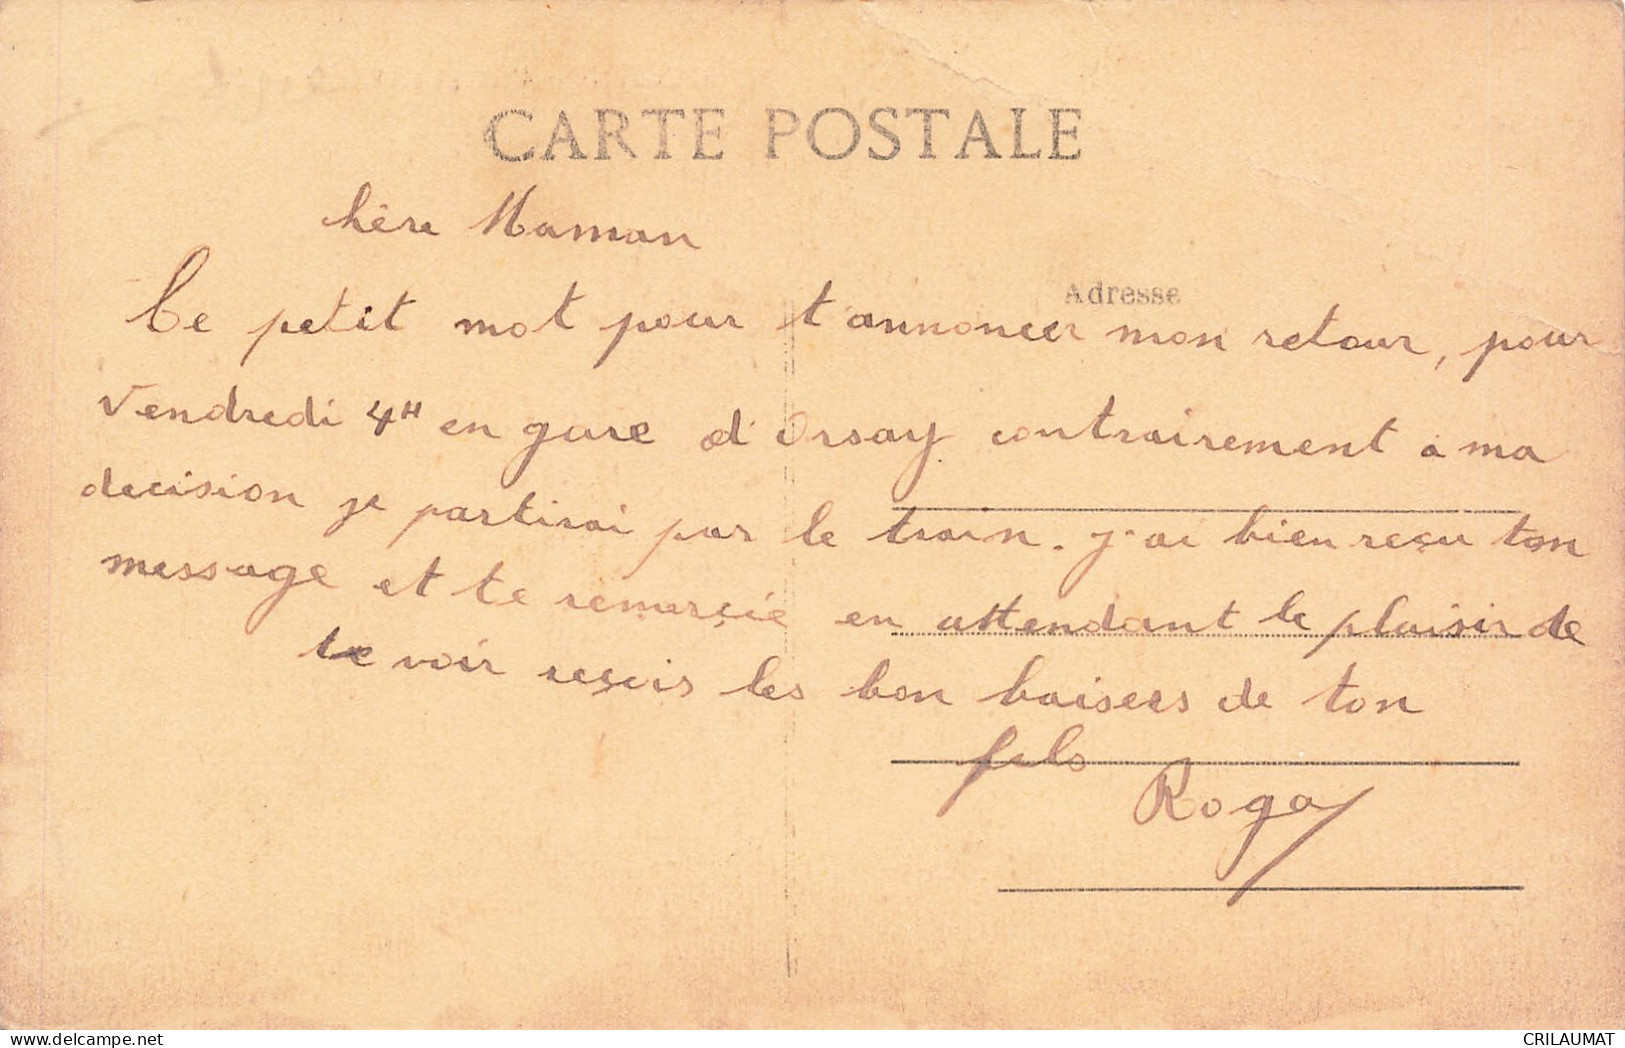 CARTE POSTALE
hère Maman
Adresse
Ce petit mot pour t'annoncer mon retour, pour
Vendredi 4H en gare d'Orsay contrairement a ma
decision je partirai par le train. J'ai bien reçu ton
message et te remerçie en attendant le plaisir de
te voir reçois les bon baisers de ton
fils
Roga
delcampe.net
CRILAUMAT